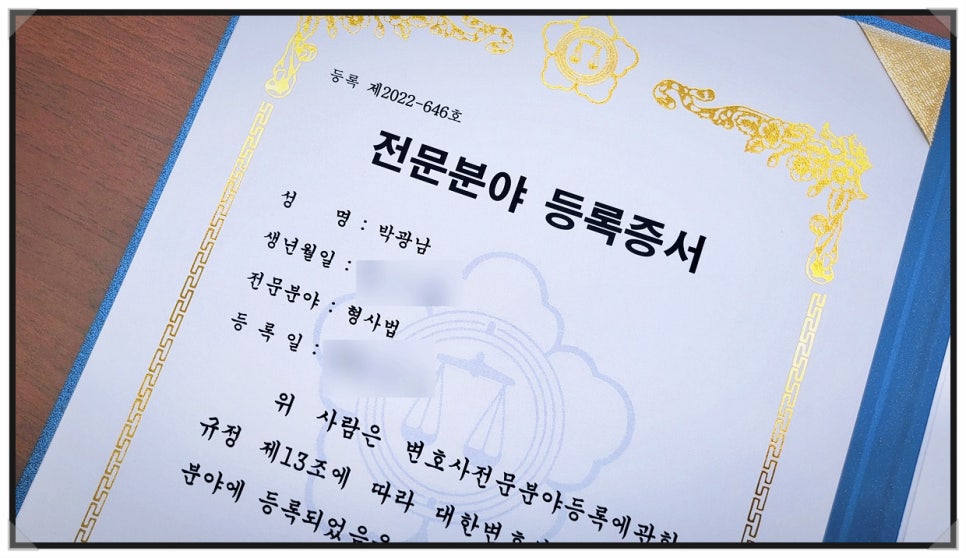 등록 제2022-646호
전문분야 등록증서
성 명 : 박광남
생년월일 :
전문분야 : 형사법
등 록 일 :
위 사람은 변호사전문분야등록에관한
규정 제13조에 따라 대한변호사
분야에 등록되었음을